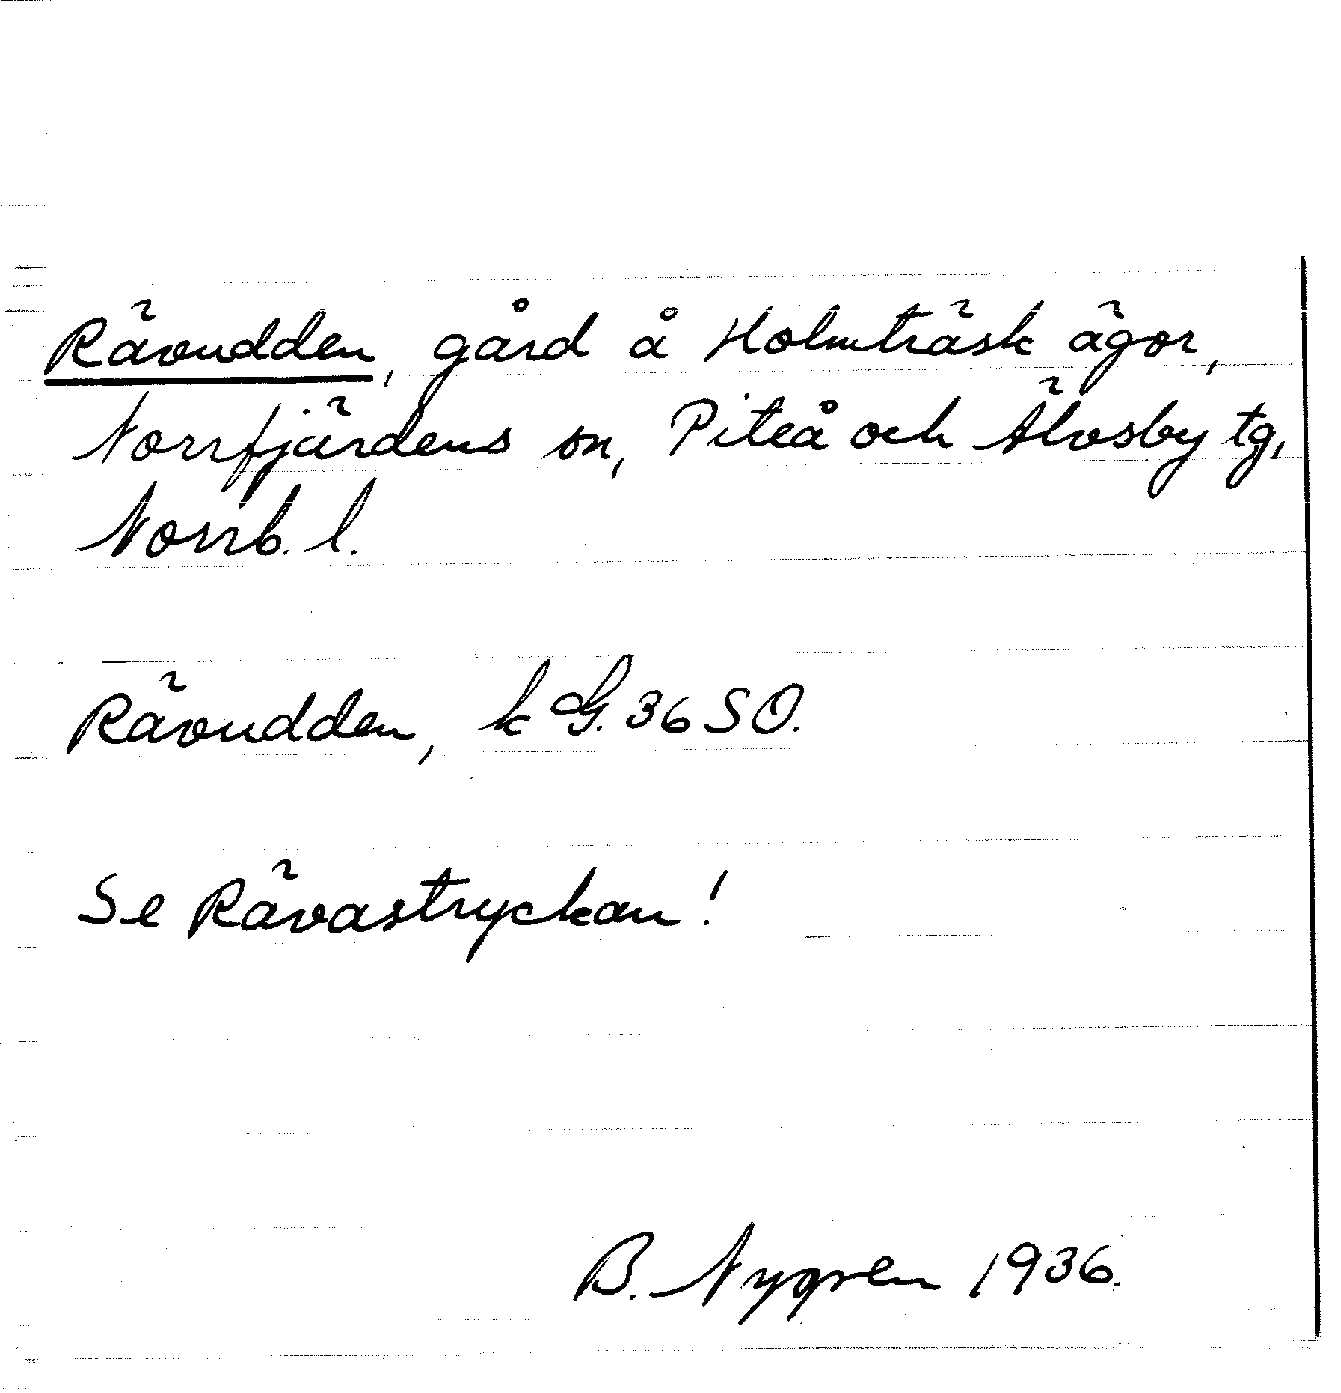 Rävudden, gård å Holmträsk ägor,
Norrfjärdens sn, Piteå och Älvsby tg,
Norrb. l.
Rävudden, k G. 36 SO.
Se Rävastryckan!
B. Nygren 1936.